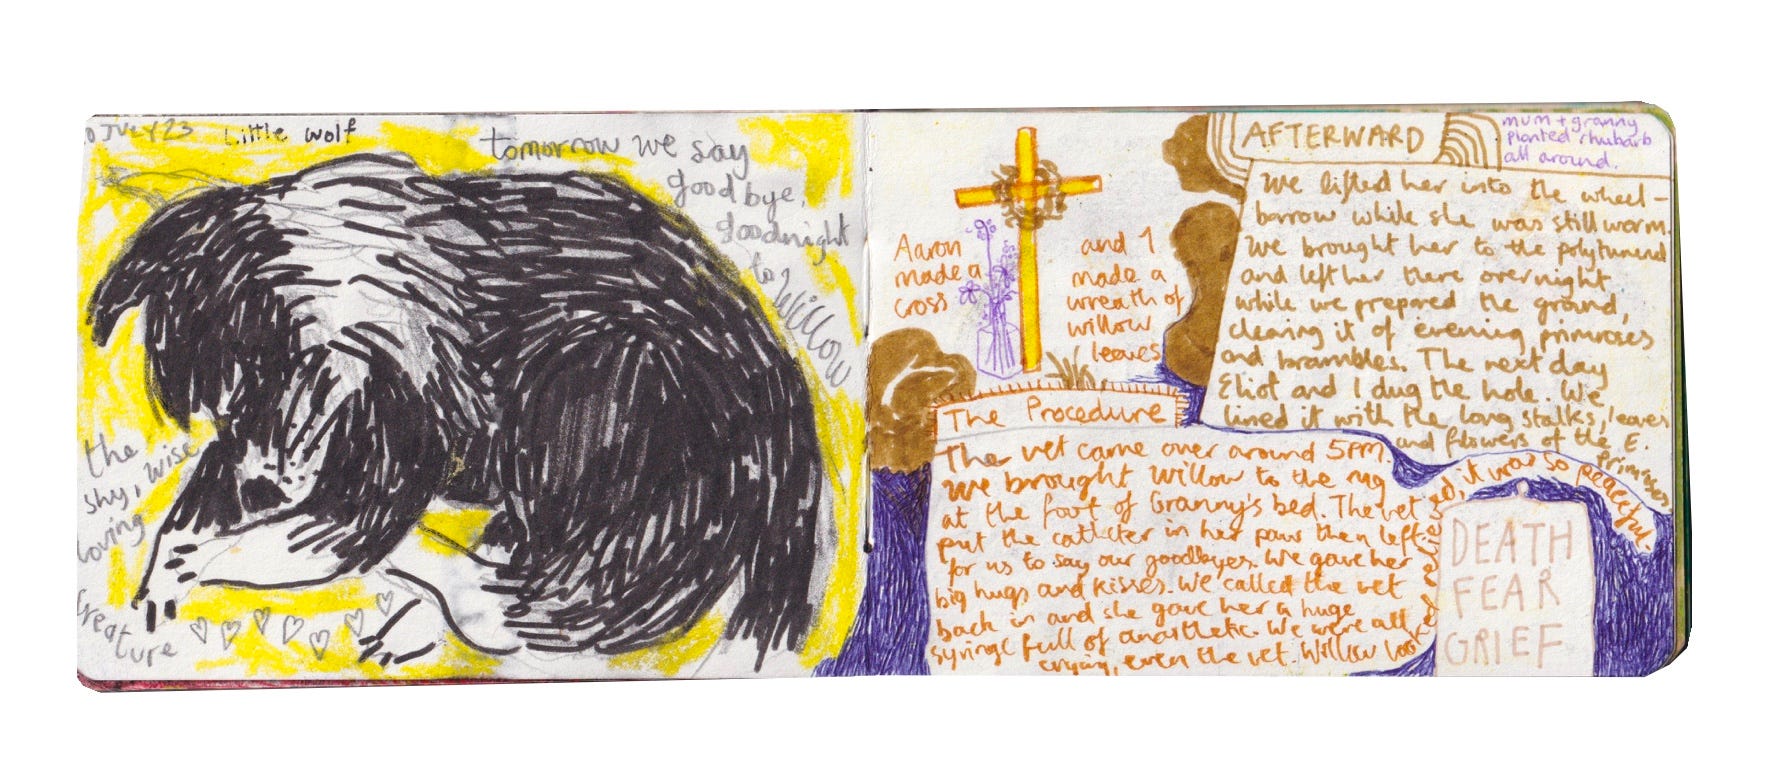 0 JULY 23
Little wolf
tomorrow we say
goodbye,
goodnight
to
Willow
the
shy, wise
loving
creature
Aaron
made a
cross
and I
made a
wreath of
willow
leaves
The Procedure
The vet came over around 5PM.
We brought Willow to the rug
at the foot of Granny's bed. The vet
put the catheter in her paw then left
for us to say our goodbyes. We gave her
big hugs and kisses. We called the vet
back in and she gave her a huge
syringe full of anasthetic. We were all
crying, even the vet. Willow looked relieved, it was so peaceful.
AFTERWARD
mum + granny
planted rhubarb
all around.
We lifted her into the wheel-
barrow while she was still warm.
We brought her to the polytunnel
and left her there overnight
while we prepared the ground,
clearing it of evening primroses
and brambles. The next day
Eliot and I dug the hole. We
lined it with the long stalks, leaves
and flowers of the E.
Primroses
DEATH
FEAR
GRIEF